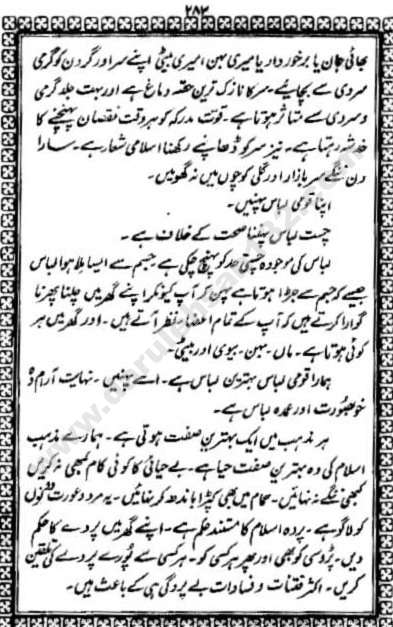 ۲۸۲
بھائی جان یا برخوردار یا میری بہن، میری بیٹی اپنے سر اور گردن کو گرمی
سردی سے بچائیے۔ سر کا نازک ترین حصّہ دماغ ہے اور بہت جلد گرمی
و سردی سے متاثر ہوتا ہے۔ قوت مدرکہ کو ہر وقت نقصان پہنچنے کا
خدشہ رہتا ہے۔ نیز سر کو ڈھانپے رکھنا اسلامی شعار ہے۔ سارا
دن ننگے سر بازار اور گلی کوچوں میں نہ گھومیں۔
اپنا قومی لباس پہنیں۔
چست لباس پہننا صحت کے خلاف ہے۔
لباس کی موجودہ چستی حد کو پہنچ چکی ہے جسم سے ایسا ملا ہوا لباس
جیسے کہ جسم سے جڑا ہوتا ہے پہن کر آپ کیونکر اپنے گھر میں چلنا پھرنا
گوارا کرتے ہیں کہ آپ کے تمام اعضاء نظر آتے ہیں۔ اور گھر میں ہر
کوئی ہوتا ہے۔ ماں۔ بہن۔ بیوی اور بیٹی۔
ہمارا قومی لباس بہترین لباس ہے۔ اسے پہنیں۔ نہایت آرام دہ
خوبصورت اور عمدہ لباس ہے۔
ہر مذہب میں ایک بہترین صفت ہوتی ہے۔ ہمارے مذہب
اسلام کی وہ بہترین صفت حیا ہے۔ بے حیائی کا کوئی کام کبھی نہ کریں
کبھی ننگے نہ نہائیں۔ حمام میں بھی کپڑا باندھ کر نہائیں۔ یہ مرد و عورت دونوں
کو لاگو ہے۔ پردہ اسلام کا مستند حکم ہے۔ اپنے گھر میں پردے کا حکم
دیں۔ پڑوسی کو بھی اور پھر ہر کسی کو۔ ہر کسی سے پورے پردے کی تلقین
کریں۔ اکثر فتنات و فسادات بے پردگی ہی کے باعث ہیں۔